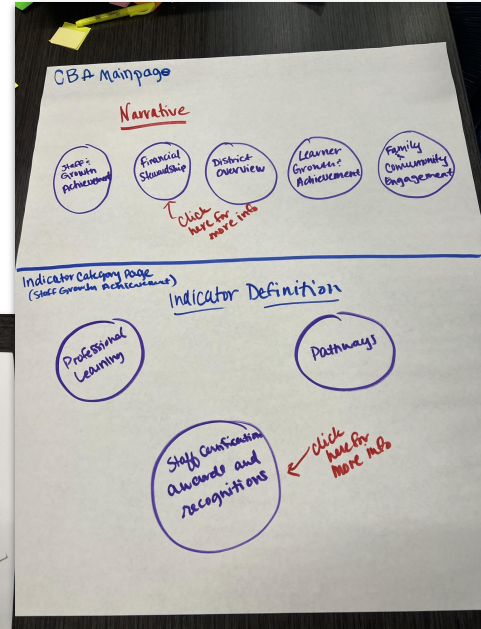 CBA Mainpage
Narrative
Staff &
Growth
Achievement
Financial
Stewardship
District
Overview
Learner
Growth &
Achievement
Family
&
Community
Engagement
click
here for
more info
Indicator Category Page
(Staff Growth Achievement)
Indicator Definition
Professional
Learning
Pathways
Staff Certification
awards and
recognitions
click
here for
more info